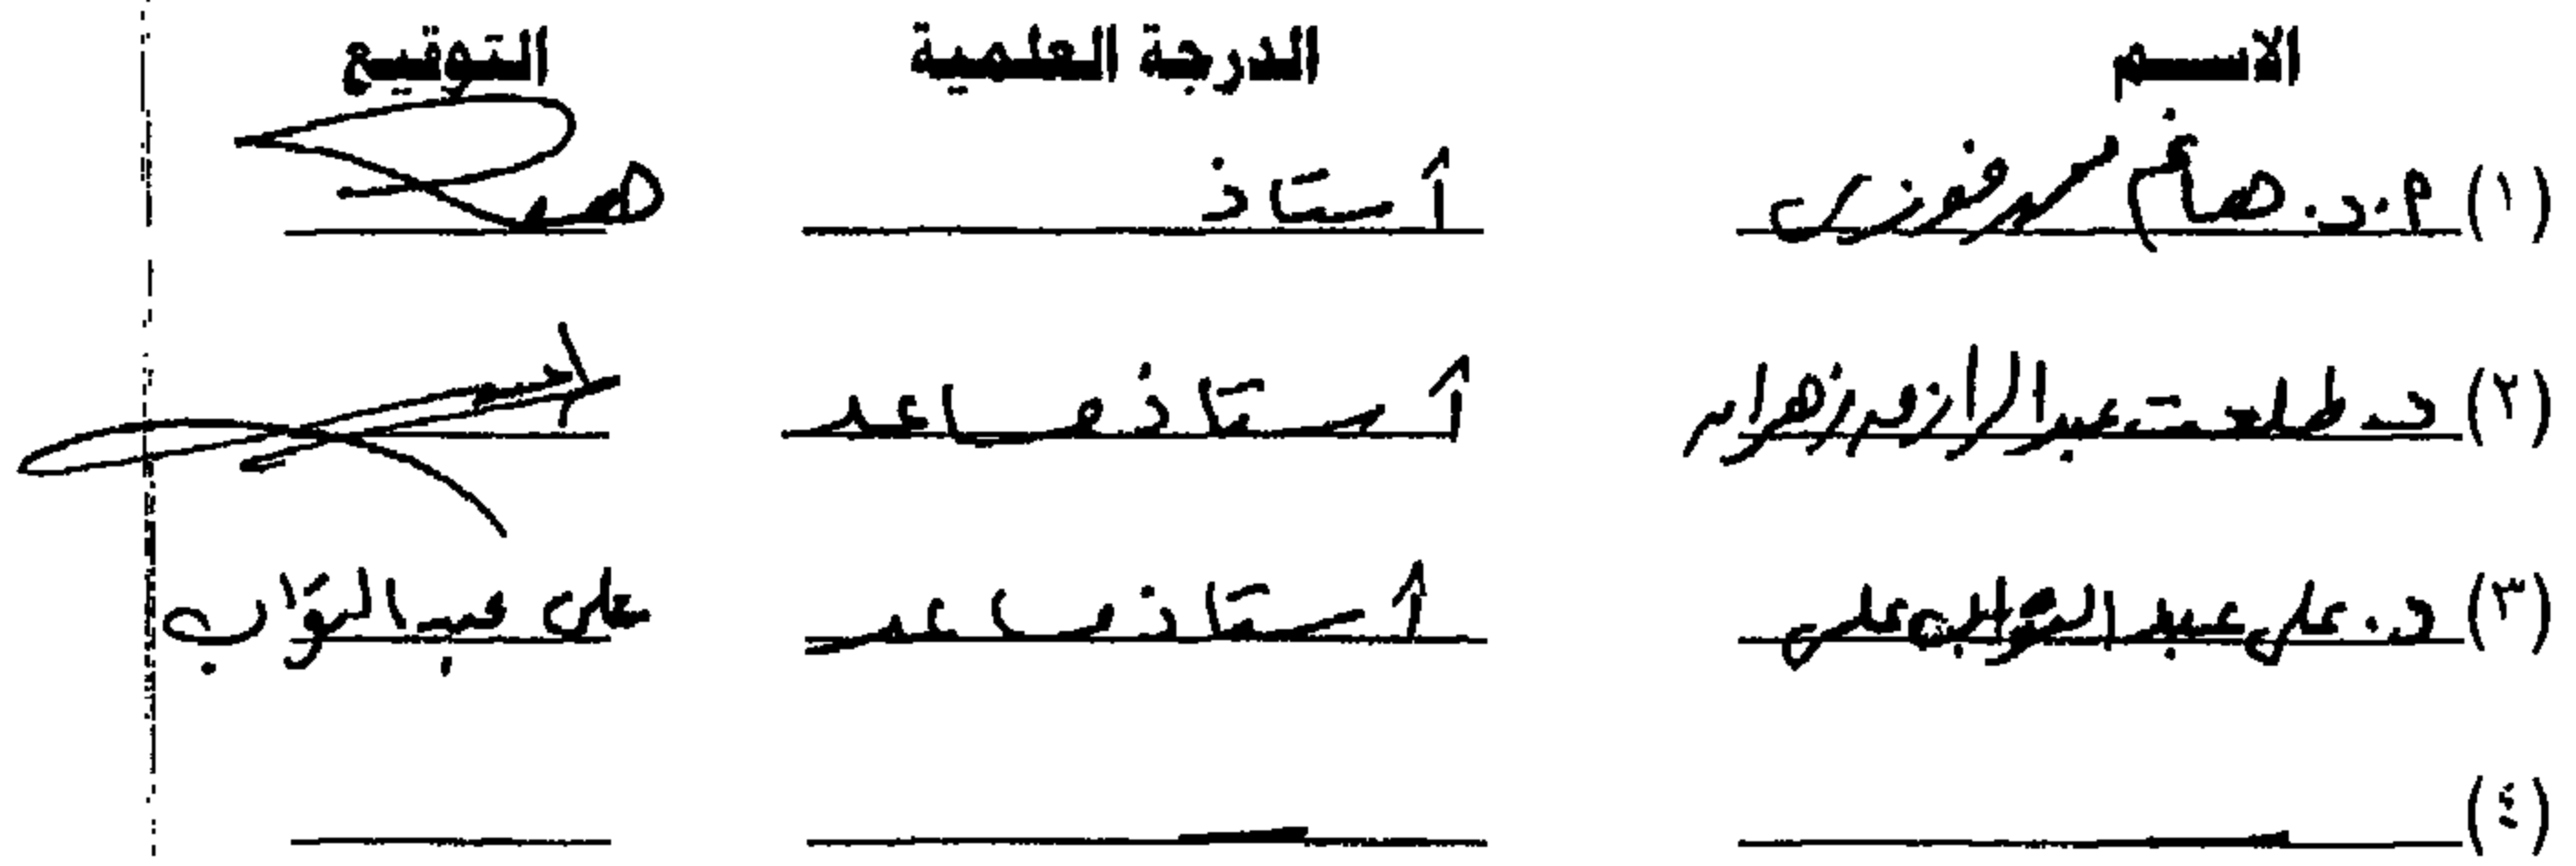 الاسم الدرجة العلمية التوقيع
(١) م.د. هانم محمد فوزى أستاذ
(٢) د. طلعت عبد الرازق زهران أستاذ مساعد
(٣) د. على عبد التواب على أستاذ مساعد على عبد التواب
(٤)